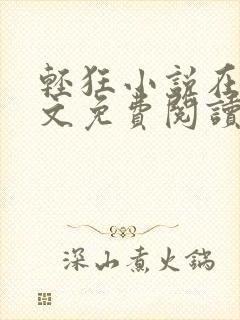 輕狂小說在
文免費閱讀
深山煮火鍋